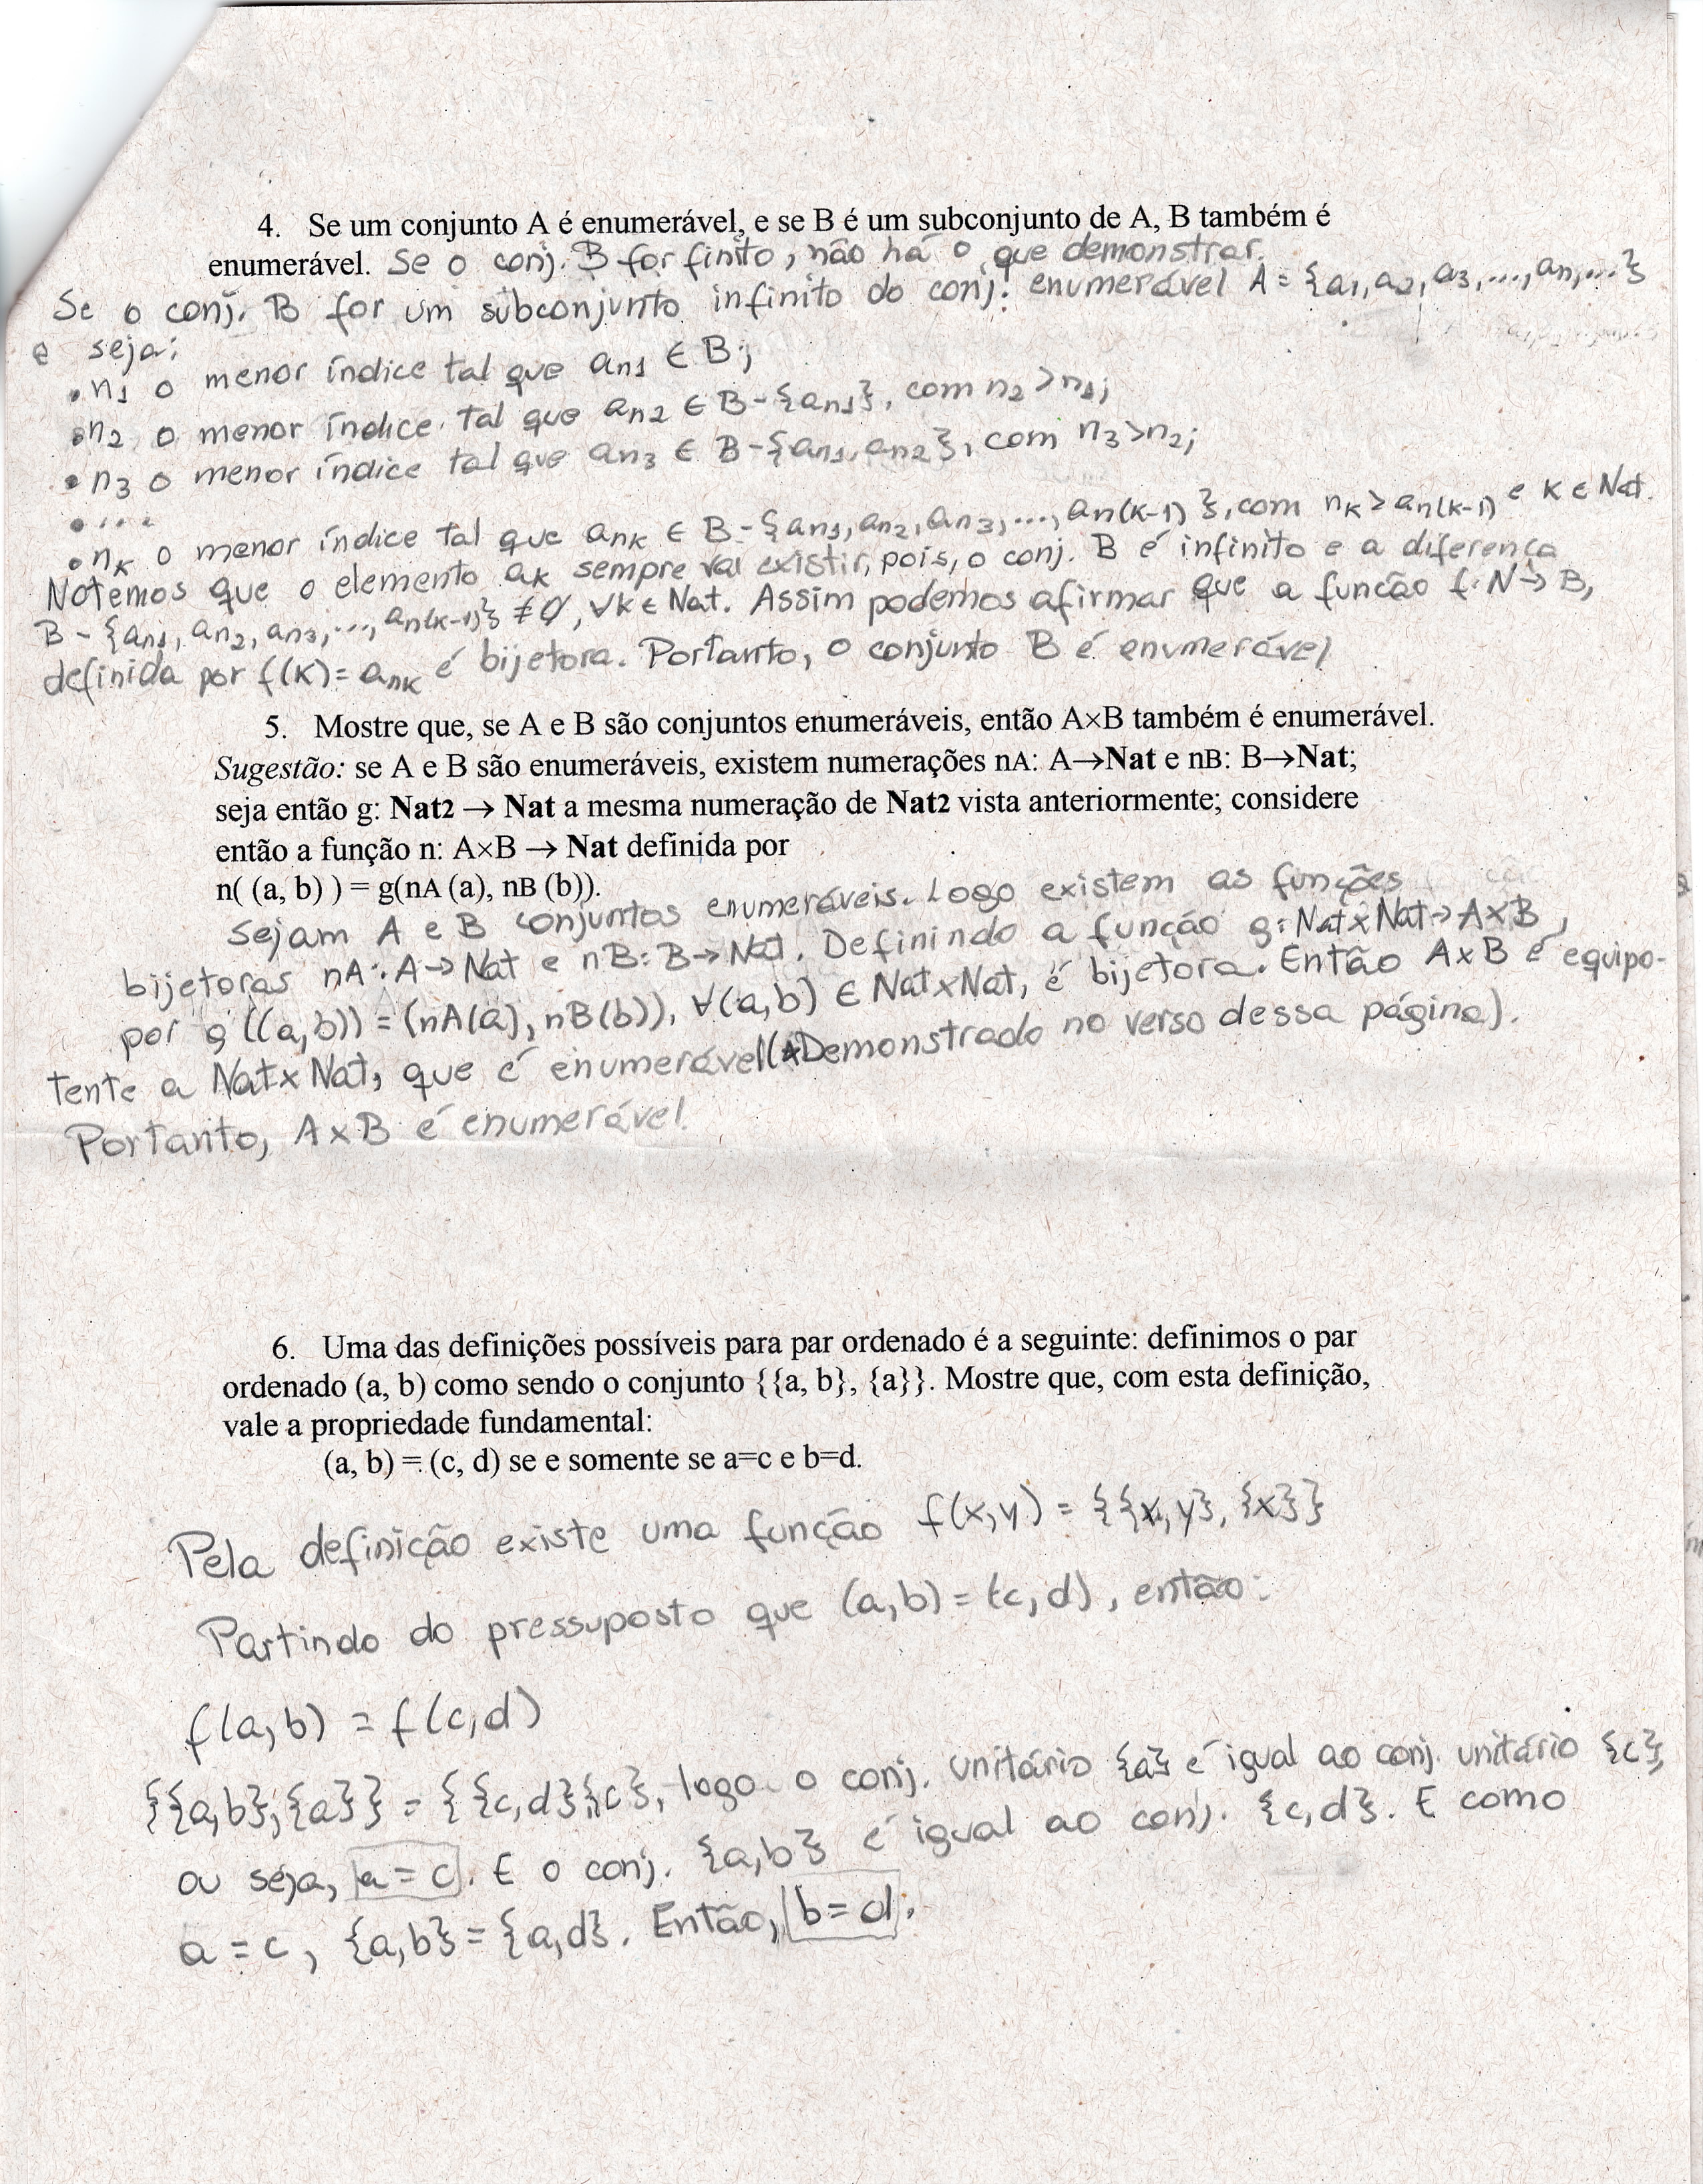 4. Se um conjunto A é enumerável, e se B é um subconjunto de A, B também é
enumerável. Se o conj. B for finito, não há o que demonstrar.
Se o conj. B for um subconjunto infinito do conj. enumerável A = {a1, a2, a3, ..., an, ...}
e seja:
• n1 o menor índice tal que an1 ∈ B;
• n2 o menor índice tal que an2 ∈ B-{an1}, com n2 > n1;
• n3 o menor índice tal que an3 ∈ B-{an1, an2}, com n3>n2;
• ...
• nK o menor índice tal que anK ∈ B-{an1, an2, an3, ..., an(K-1)}, com nK > an(K-1) e K ∈ Nat.
Notemos que o elemento aK sempre vai existir, pois, o conj. B é infinito e a diferença
B - {an1, an2, an3, ..., an(K-1)} ≠ ∅, ∀k ∈ Nat. Assim podemos afirmar que a função f: N → B,
definida por f(K) = anK é bijetora. Portanto, o conjunto B é enumerável
5. Mostre que, se A e B são conjuntos enumeráveis, então A×B também é enumerável.
Sugestão: se A e B são enumeráveis, existem numerações nA: A→Nat e nB: B→Nat;
seja então g: Nat2 → Nat a mesma numeração de Nat2 vista anteriormente; considere
então a função n: A×B → Nat definida por
n( (a, b) ) = g(nA (a), nB (b)).
Sejam A e B conjuntos enumeráveis. Logo existem as funções
bijetoras nA: A→Nat e nB: B→Nat. Definindo a função g: Nat×Nat→A×B,
por g((a,b)) = (nA(a), nB(b)), ∀(a,b) ∈ Nat×Nat, é bijetora. Então A×B é equipo-
tente a Nat×Nat, que é enumerável(*Demonstrado no verso dessa página).
Portanto, A×B é enumerável.
6. Uma das definições possíveis para par ordenado é a seguinte: definimos o par
ordenado (a, b) como sendo o conjunto {{a, b}, {a}}. Mostre que, com esta definição,
vale a propriedade fundamental:
(a, b) = (c, d) se e somente se a=c e b=d.
Pela definição existe uma função f(x,y) = {{x,y}, {x}}
Partindo do pressuposto que (a,b) = (c,d), então:
f(a,b) = f(c,d)
{{a,b},{a}} = {{c,d}{c}, logo o conj. unitário {a} é igual ao conj. unitário {c},
ou seja, a = c. E o conj. {a,b} é igual ao conj. {c,d}. E como
a = c, {a,b} = {a,d}. Então, b = d.